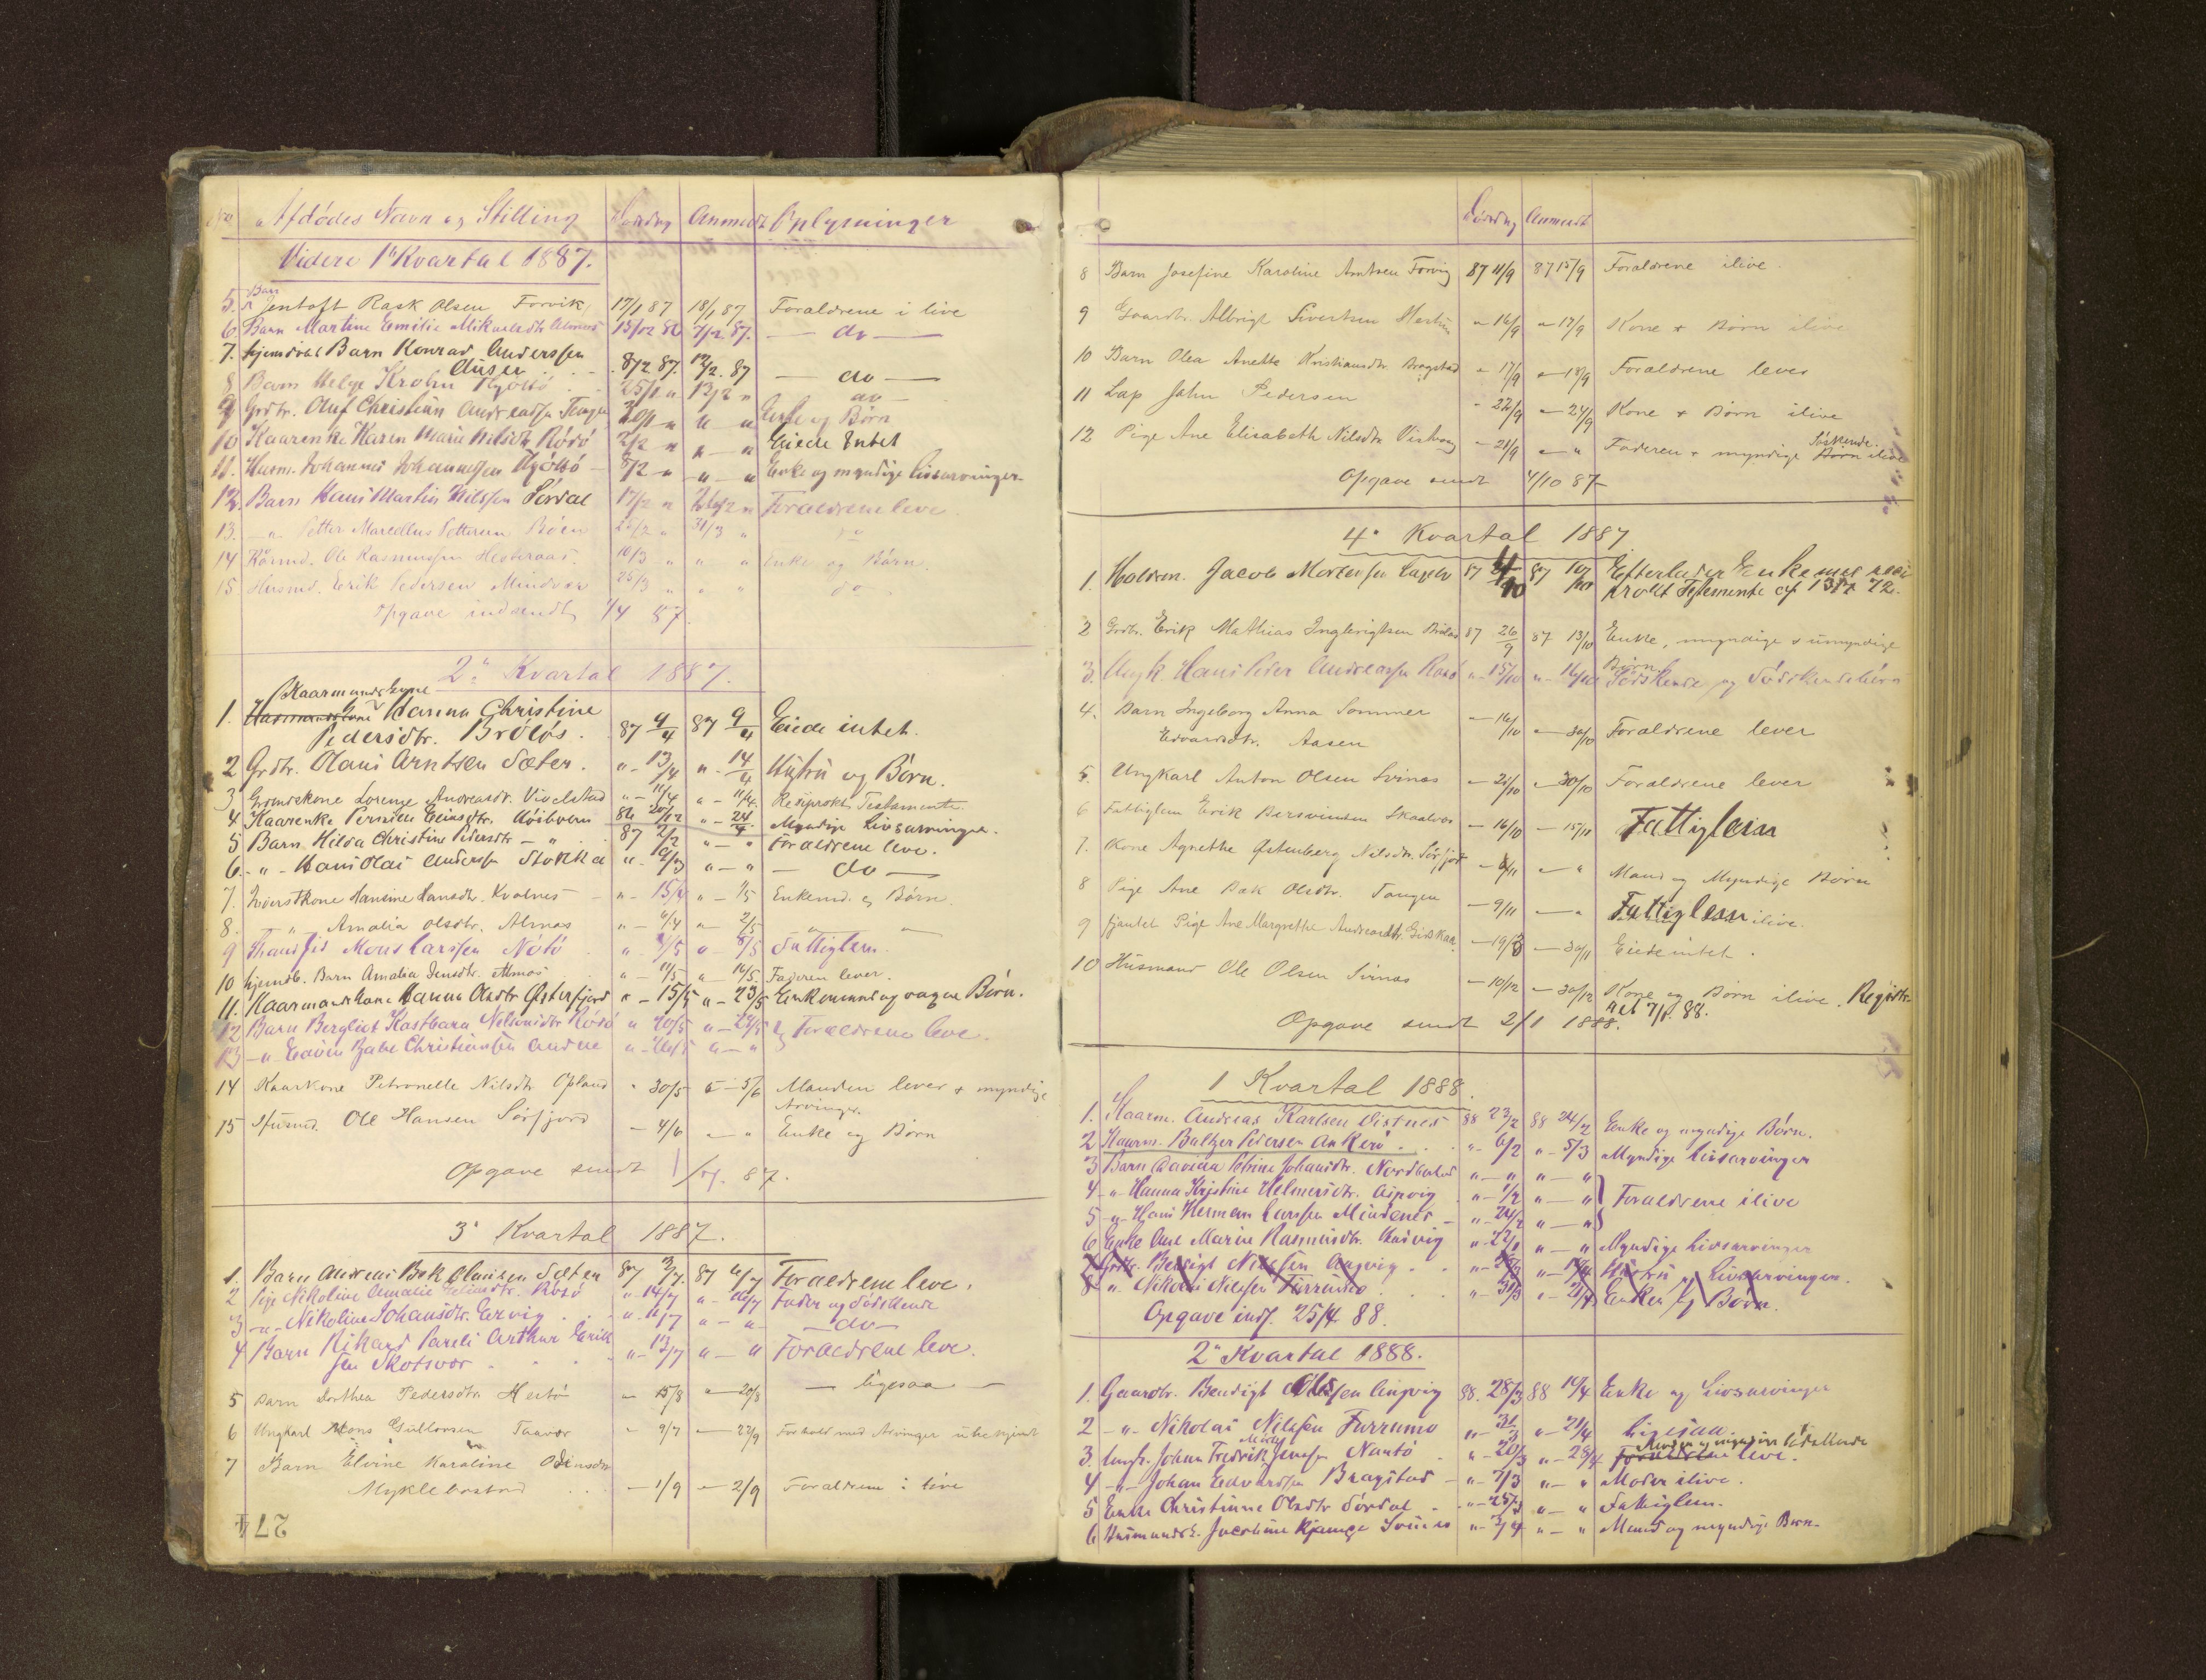 No Afdødes Navn og Stilling Dødsdag Anmeldt Oplysninger
Videre 1ste Kvartal 1887.
5. Barn Jentoft Rask Olsen Forvik 17/1 87 18/1 87 Forældrene i live
6. Barn Martine Emilie Mikalsdtr Almos 15/12 86 7/2 87. — do —
7. hjemdøbt Barn Konrad Anderssen 8/2 87. 12/2. 87 — do —
8 Barn Helge Krohn Hjortsø 25/1 " 13/2 " do —
9 Grdbr. Oluf Christian Andreassen Tangen 30/1 " " " Enke og Børn
10 Kaarenke Karen Marie Nilsdtr Rødø 2/2 " " — " Eiede Intet
11. Husm. Johannes Johannessen 8/2 — " " — " Enke og myndige Livsarvinger
12. Barn Hans Martin Nilssen Sørdal 17/2 " 26/2 " Forældrene leve.
13. — " — Petter Marcellus Pettersen Bøen 25/2 " 31/3 " do
14 Kårmd. Ole Rasmussen Hesteraas 10/3 " " " Enke og Børn.
15 Husmd. Erik Pedersen Mindvær 25/3 " " " do
Opgave indsendt 1/4 87.
2det Kvartal 1887.
Kaarmandskone
1. Hanna Christine
Pedersdtr. Brøløs. 87 4/4 87 9/4 Eiede intet.
2 Grdbr. Olaus Arntsen Sæter. " — 13/4 " — 14/4 Hustru og Børn.
3 Grmdskone Lorense Andreasdtr. Vivelstad " — 11/4 " — 11/4. Resiprokt Testamente.
4 Kaarenke Pernille Eliasdtr. 86 20/12 " — 24/4. Myndige Livsarvinger.
5 Barn Hilda Christine Pedersdtr — " 87 2/2 " — " Forældrene leve.
6. — " — Hans Olai Anderssen Stokka " 19/3 " — " — do —
7. Inderstkone Hansine Hansdtr. Kvalnes — " — 15/4 " — 1/5 Enkemd. og Børn.
8. — " — Amalia Olsdtr. Almos " — 11/4 " — 2/5 " "
9 Mons Larssen Nótó " 4/5 " 8/5 Fattiglem.
10 hjemdb. Barn Amalia Jensdtr. Almos " — 11/5 " 16/5. Faderen lever.
11. Kaarmandskone Hanna Olsdtr Østerfjord " — 15/5 " — 23/5 Enkemand og Børn.
12 Barn Bergliot Kastbara Nilsonsdtr Rødø " 20/5 " — 24/5 } Forældrene leve.
13 — " — Edvin Christiansen " — 26/5 " — "
14 Kaarkone Petronelle Nilsdtr Opland " 30/5 " — 5/6 Manden lever & myndige
Arvinger.
15 Husmd. Ole Hansen Sørfjord — 4/6 — " Enke og Børn
Opgave sendt 1/7. 87.
3' Kvartal 1887.
1. Barn Andreas Bek Olausen Sæter 87 3/7. 87 4/7 Forældrene leve.
2 Pige Nikoline Amalie Rødø " 14/7 " — 16/7 Fader og Sødskende
3 — " — Nikoline Johansdtr. Ervig " — 11/7 " — " — do —
4 Barn Rikard Pareli Arthur Erik
sen Skotsvær " — 13/7 " — " Forældrene leve.
5 Barn Dorthea Pedersdtr Hertø — 15/8 — 20/8 — ligesaa —
6 Ungkarl Mons Gullorsen Taavær — 9/7 — 22/9 Forhold med Arvinger ubekjendt
7 Barn Elvine Karoline Odinsdtr
Myklebostad — 1/9 — 2/9 Forældrene i live
27
Dødsdag Anmeldt
8 Barn Josefine Karoline Arntsen Forvig 87 11/9 87 15/9 Forældrene ilive.
9 Gaardbr. Albrigt Sivertsen " 16/9 " 17/9 Kone & Børn ilive
10 Barn Olea Anette Kristiansdtr Bragstad " 17/9 " 18/9 Forældrene lever
11 Lap Jahn Pedersen " 22/9 — 24/9 Kone & Børn ilive
12 Pige Ane Elisabeth Nilsdtr Vistvog — 21/9 — " Faderen & myndige Børn Søskende. ilive
Opgave sendt 4/10 87
4' Kvartal 1887
1. Holdsm. Jacob Mortensen 87 4/10 87 10/10 Efterlader Enke med resi
prokt Testamente af 13/7 72.
2 Grdbr. Erik Mathias Inglerigtsen Brøløs 87 26/9 87 13/10 Enke, myndige & umyndige
Børn
3. Ungk. Hans Peder Andreassen Rødø " — 15/10 " — 16/10 Sødskende og Sødskendebørn
4. Barn Ingeborg Anna Sommer
Edvardsdtr. Aasen — 16/10 — 30/10 Forældrene lever
5. Ungkarl Anton Olsen Svinæs — 21/10 — 30/10 Forældrene lever
6 Fattiglem Erik Bersvendsen Skaalvær — 16/10 — 15/11 Fattiglem
7. Kone Agnethe Østenberg Nilsdtr. Sørfjord — 4/11 — " Mand og Myndige Børn
8 Pige Ane Bak Olsdtr. Tangen — 9/11 — " Fattiglem ilive.
9 fjantet Pige Ane Margrethe Andreasdtr. — 19/8 — 30/11 Eiede intet.
10 Husmand Ole Olsen Svinæs — 10/12 — 30/12 Kone og Børn ilive. Registr.
7/1. 88.
Opgave sendt 2/1 1888.
1 Kvartal 1888.
1. Kaarm. Andreas Karlsen Vistnes 88 23/2 88 24/2 Enke og myndige Børn.
2 Kaarm. Baltzer Pedersen Ankerø . . " 6/2 " — 5/3 Myndige Livsarvinger
3 Barn Davida Petrine Johansdtr. " — " " — "
4 — " — Hanna Kristine Helmersdtr. Aspvig " — 1/2 " — " } Forældrene ilive
5 — " — Hans Herman Larssen Mindenes — " — 24/2 " — "
6 Enke Ane Marie Rasmusdtr. Husvig " — 22/1 " — " Myndige Livsarvinger
7 Grdbr. Bendigt Nilssen Angvig . . " — 28/3 " — 10/4 Hustru og Livsarvinger.
8 — " Nikolai Nilssen Furrumo . . . " — 31/3 " — 21/4 Enke og Børn.
Opgave inds. 25/4 88.
2det Kvartal 1888.
1. Gaardbr. Bendigt Olssen Angvig 88. 28/3 88 10/4 Enke og Livsarvinger
2 — " — Nikolai Nilssen Furrumo " — 31/3 " — 21/4 Ligesaa.
3. Ungk. Johan Fredrik Jenssen Nautø " — 20/3 " — 28/4 Moder og myndige Sødskende leve.
4 — " — Johan Edvardsen Bragstad — " — 7/3 " — " Moder ilive.
5 Enke Christianne Olsdtr Sørdal — " — 25/3 " — " Fattiglem.
6 Husmandsk. Jacobine Svines " — 3/4 " — " Mand og myndige Børn.